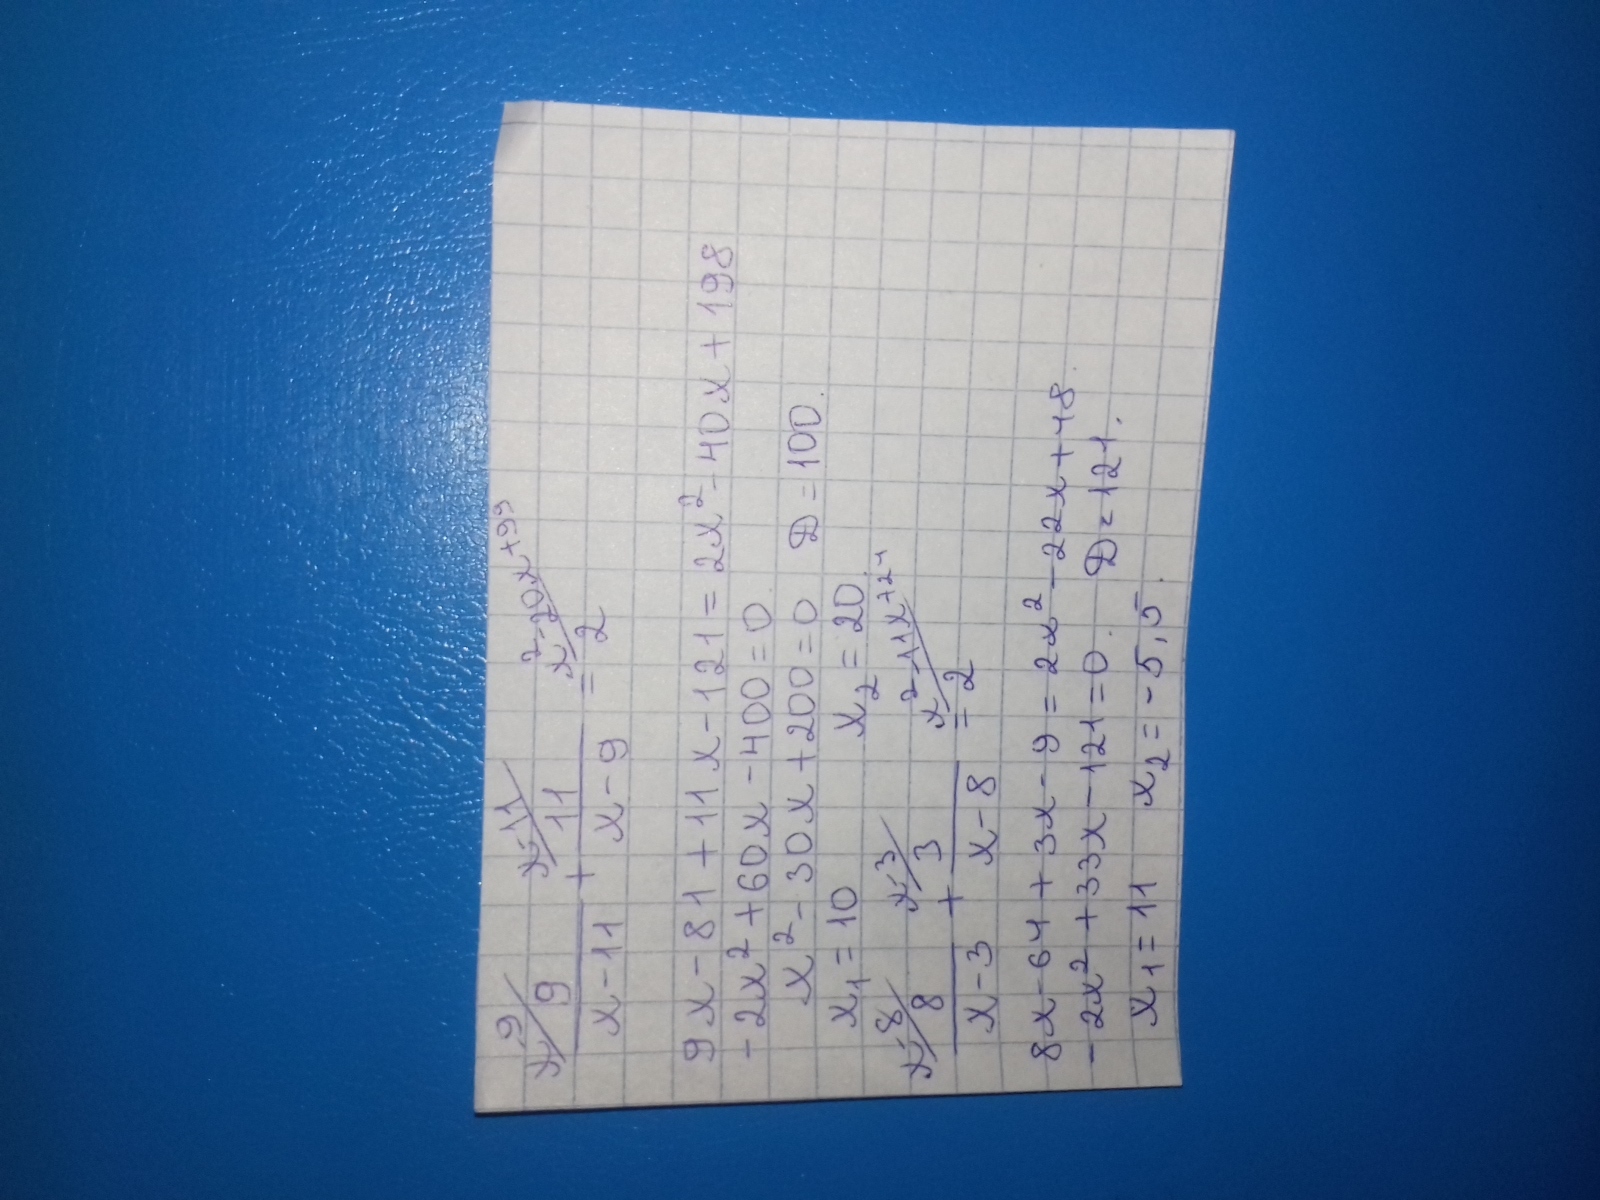 x-9/ x-11/ x²-20x+99/
9/(x-11) + 11/(x-9) = 2
9x-81+11x-121=2x²-40x+198
-2x²+60x-400=0
x²-30x+200=0 D=100.
x₁=10 x₂=20.
x-8/ x-3/ x²-11x+24/
8/(x-3) + 3/(x-8) = 2
8x-64+3x-9=2x²-22x+48.
-2x²+33x-121=0. D=121.
x₁=11 x₂=-5,5.